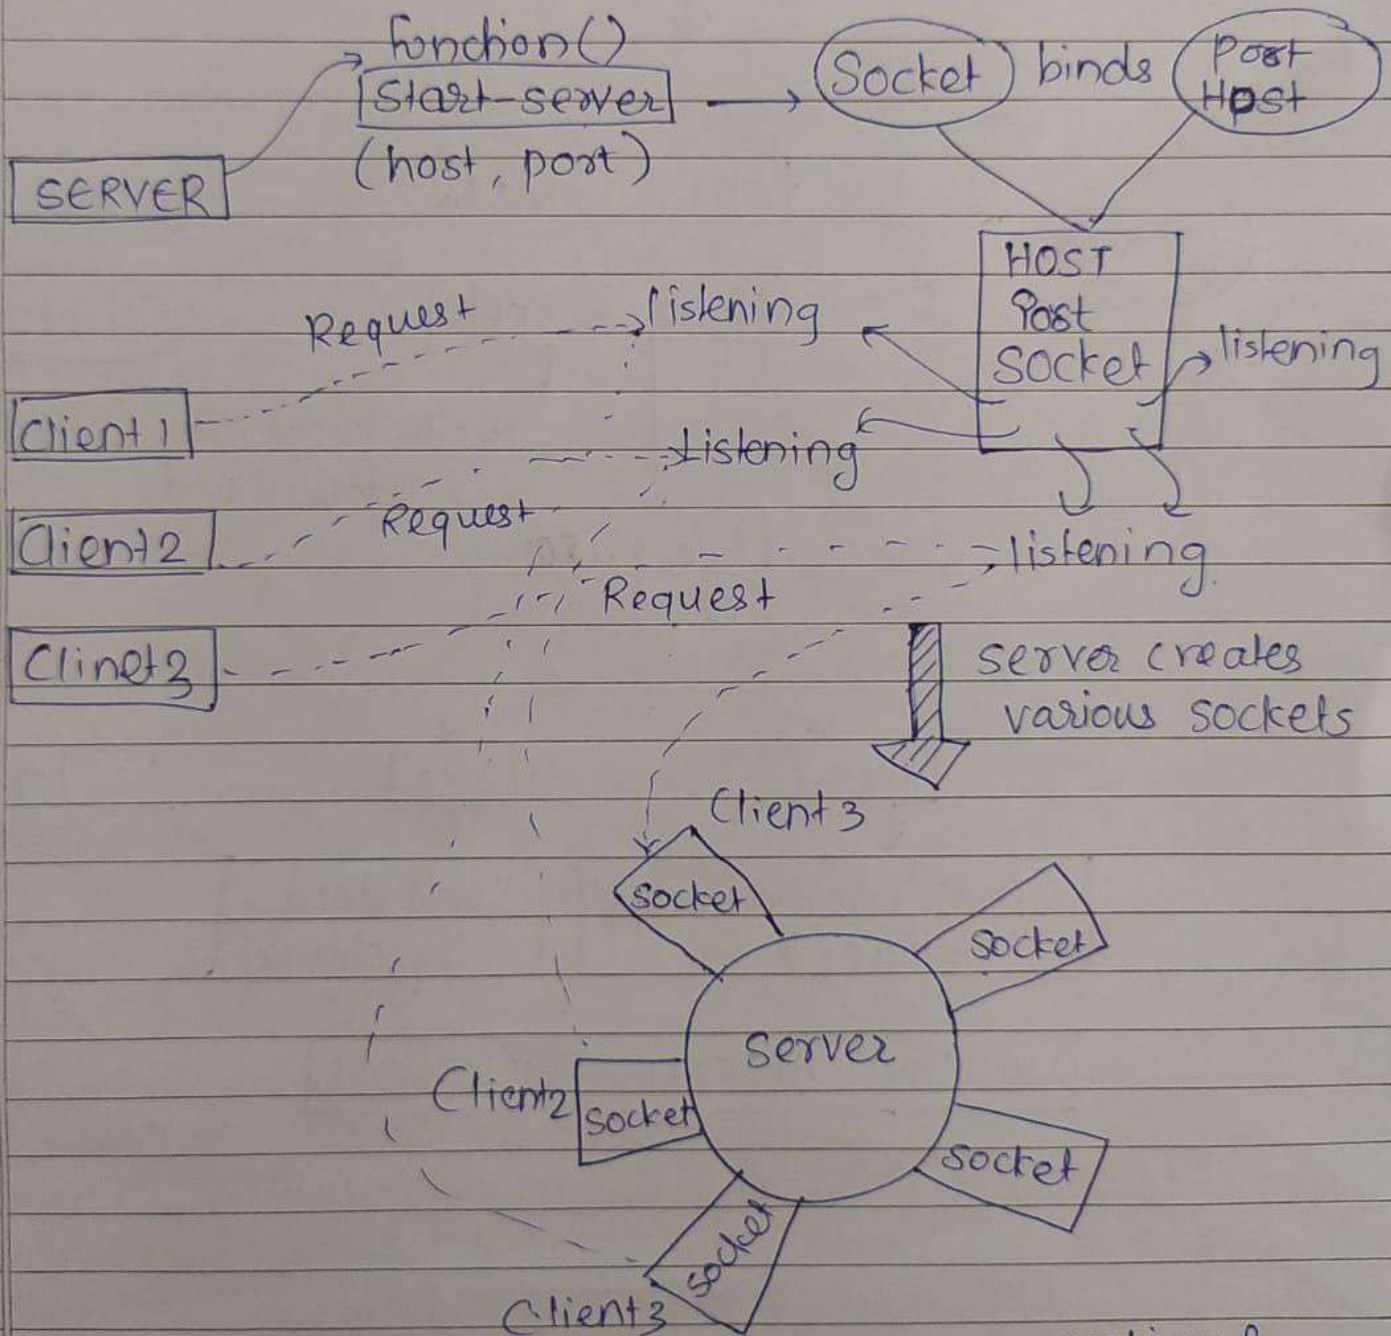 function()
start-server
(host, port)
Socket binds Port
Host
SERVER
HOST
Port
Socket
Request
listening
listening
Client 1
Listening
Request
Client2
listening
Request
Clinet3
server creates
various sockets
Client 3
socket
socket
server
Client2
socket
socket
socket
Client3